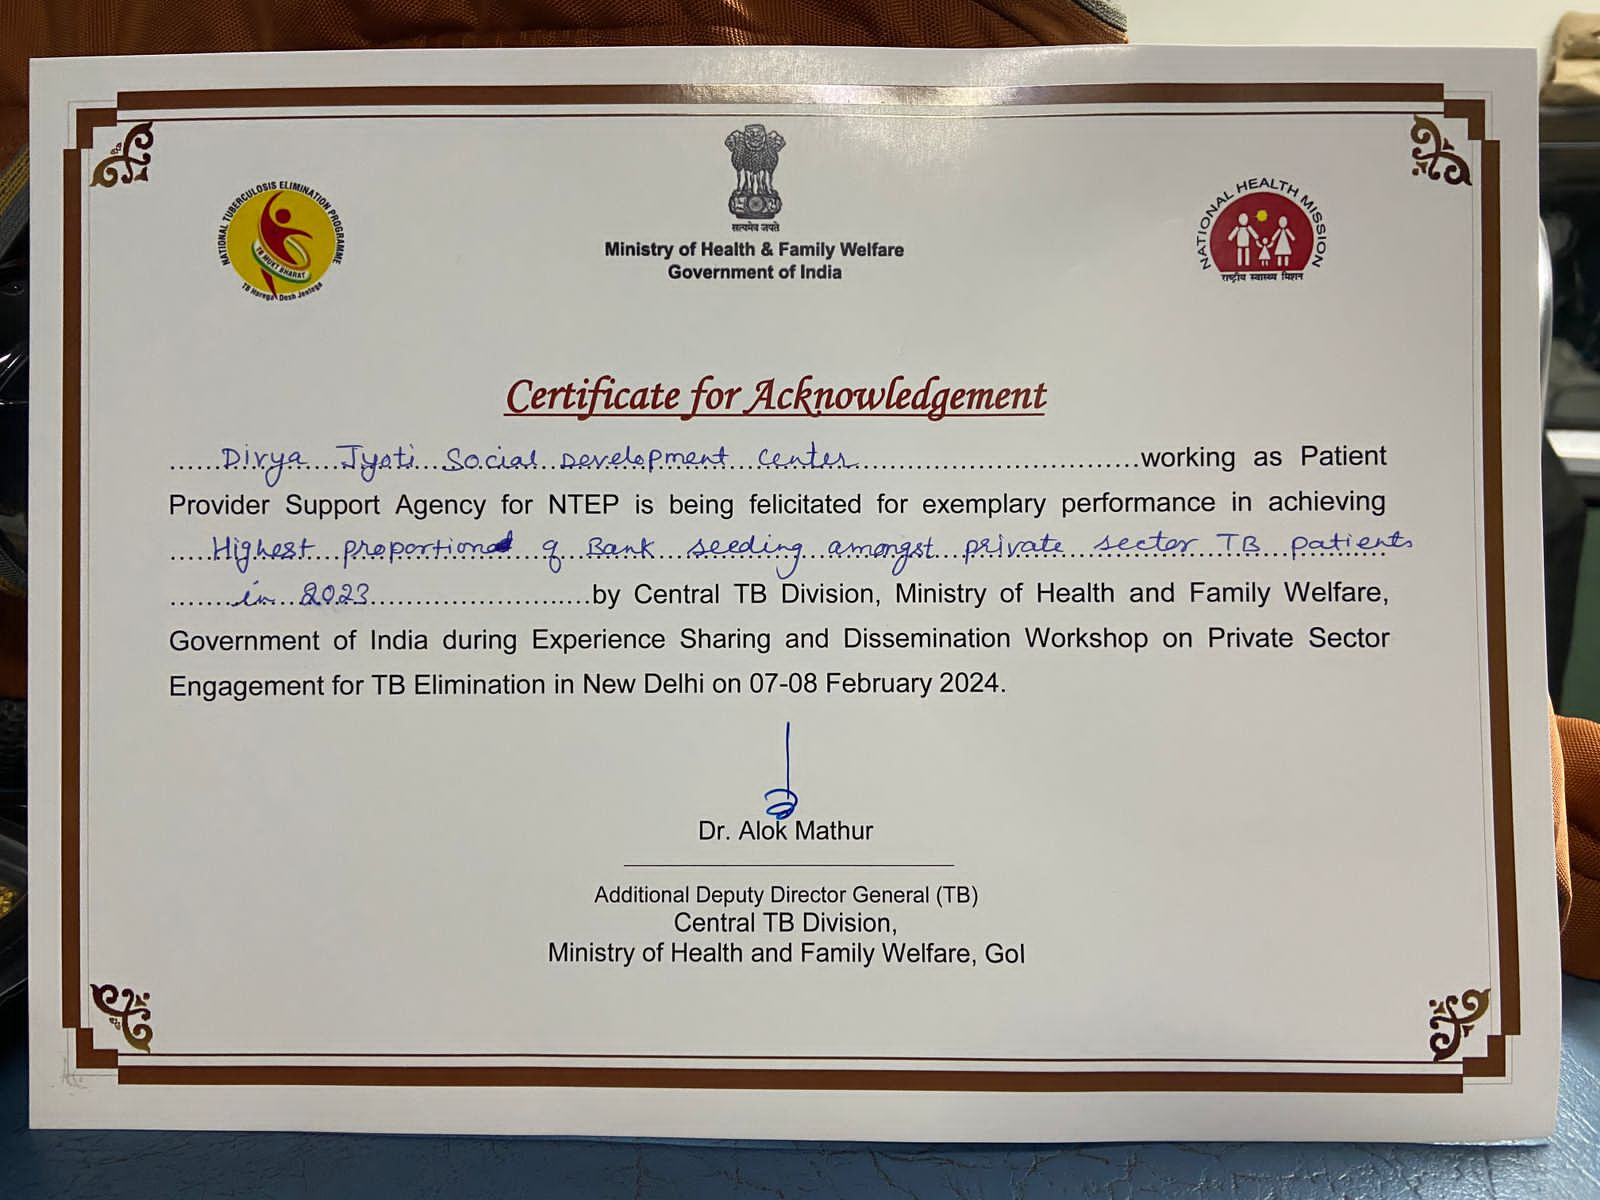 NATIONAL TUBERCULOSIS ELIMINATION PROGRAMME
TB MUKT BHARAT
TB Harega Desh Jeetega
सत्यमेव जयते
Ministry of Health & Family Welfare
Government of India
NATIONAL HEALTH MISSION
राष्ट्रीय स्वास्थ्य मिशन
Certificate for Acknowledgement
......Divya Jyoti Social Development Center..............................working as Patient
Provider Support Agency for NTEP is being felicitated for exemplary performance in achieving
.....Highest proportion of Bank seeding amongst private sector TB patients
........in 2023............................by Central TB Division, Ministry of Health and Family Welfare,
Government of India during Experience Sharing and Dissemination Workshop on Private Sector
Engagement for TB Elimination in New Delhi on 07-08 February 2024.
Dr. Alok Mathur
Additional Deputy Director General (TB)
Central TB Division,
Ministry of Health and Family Welfare, GoI